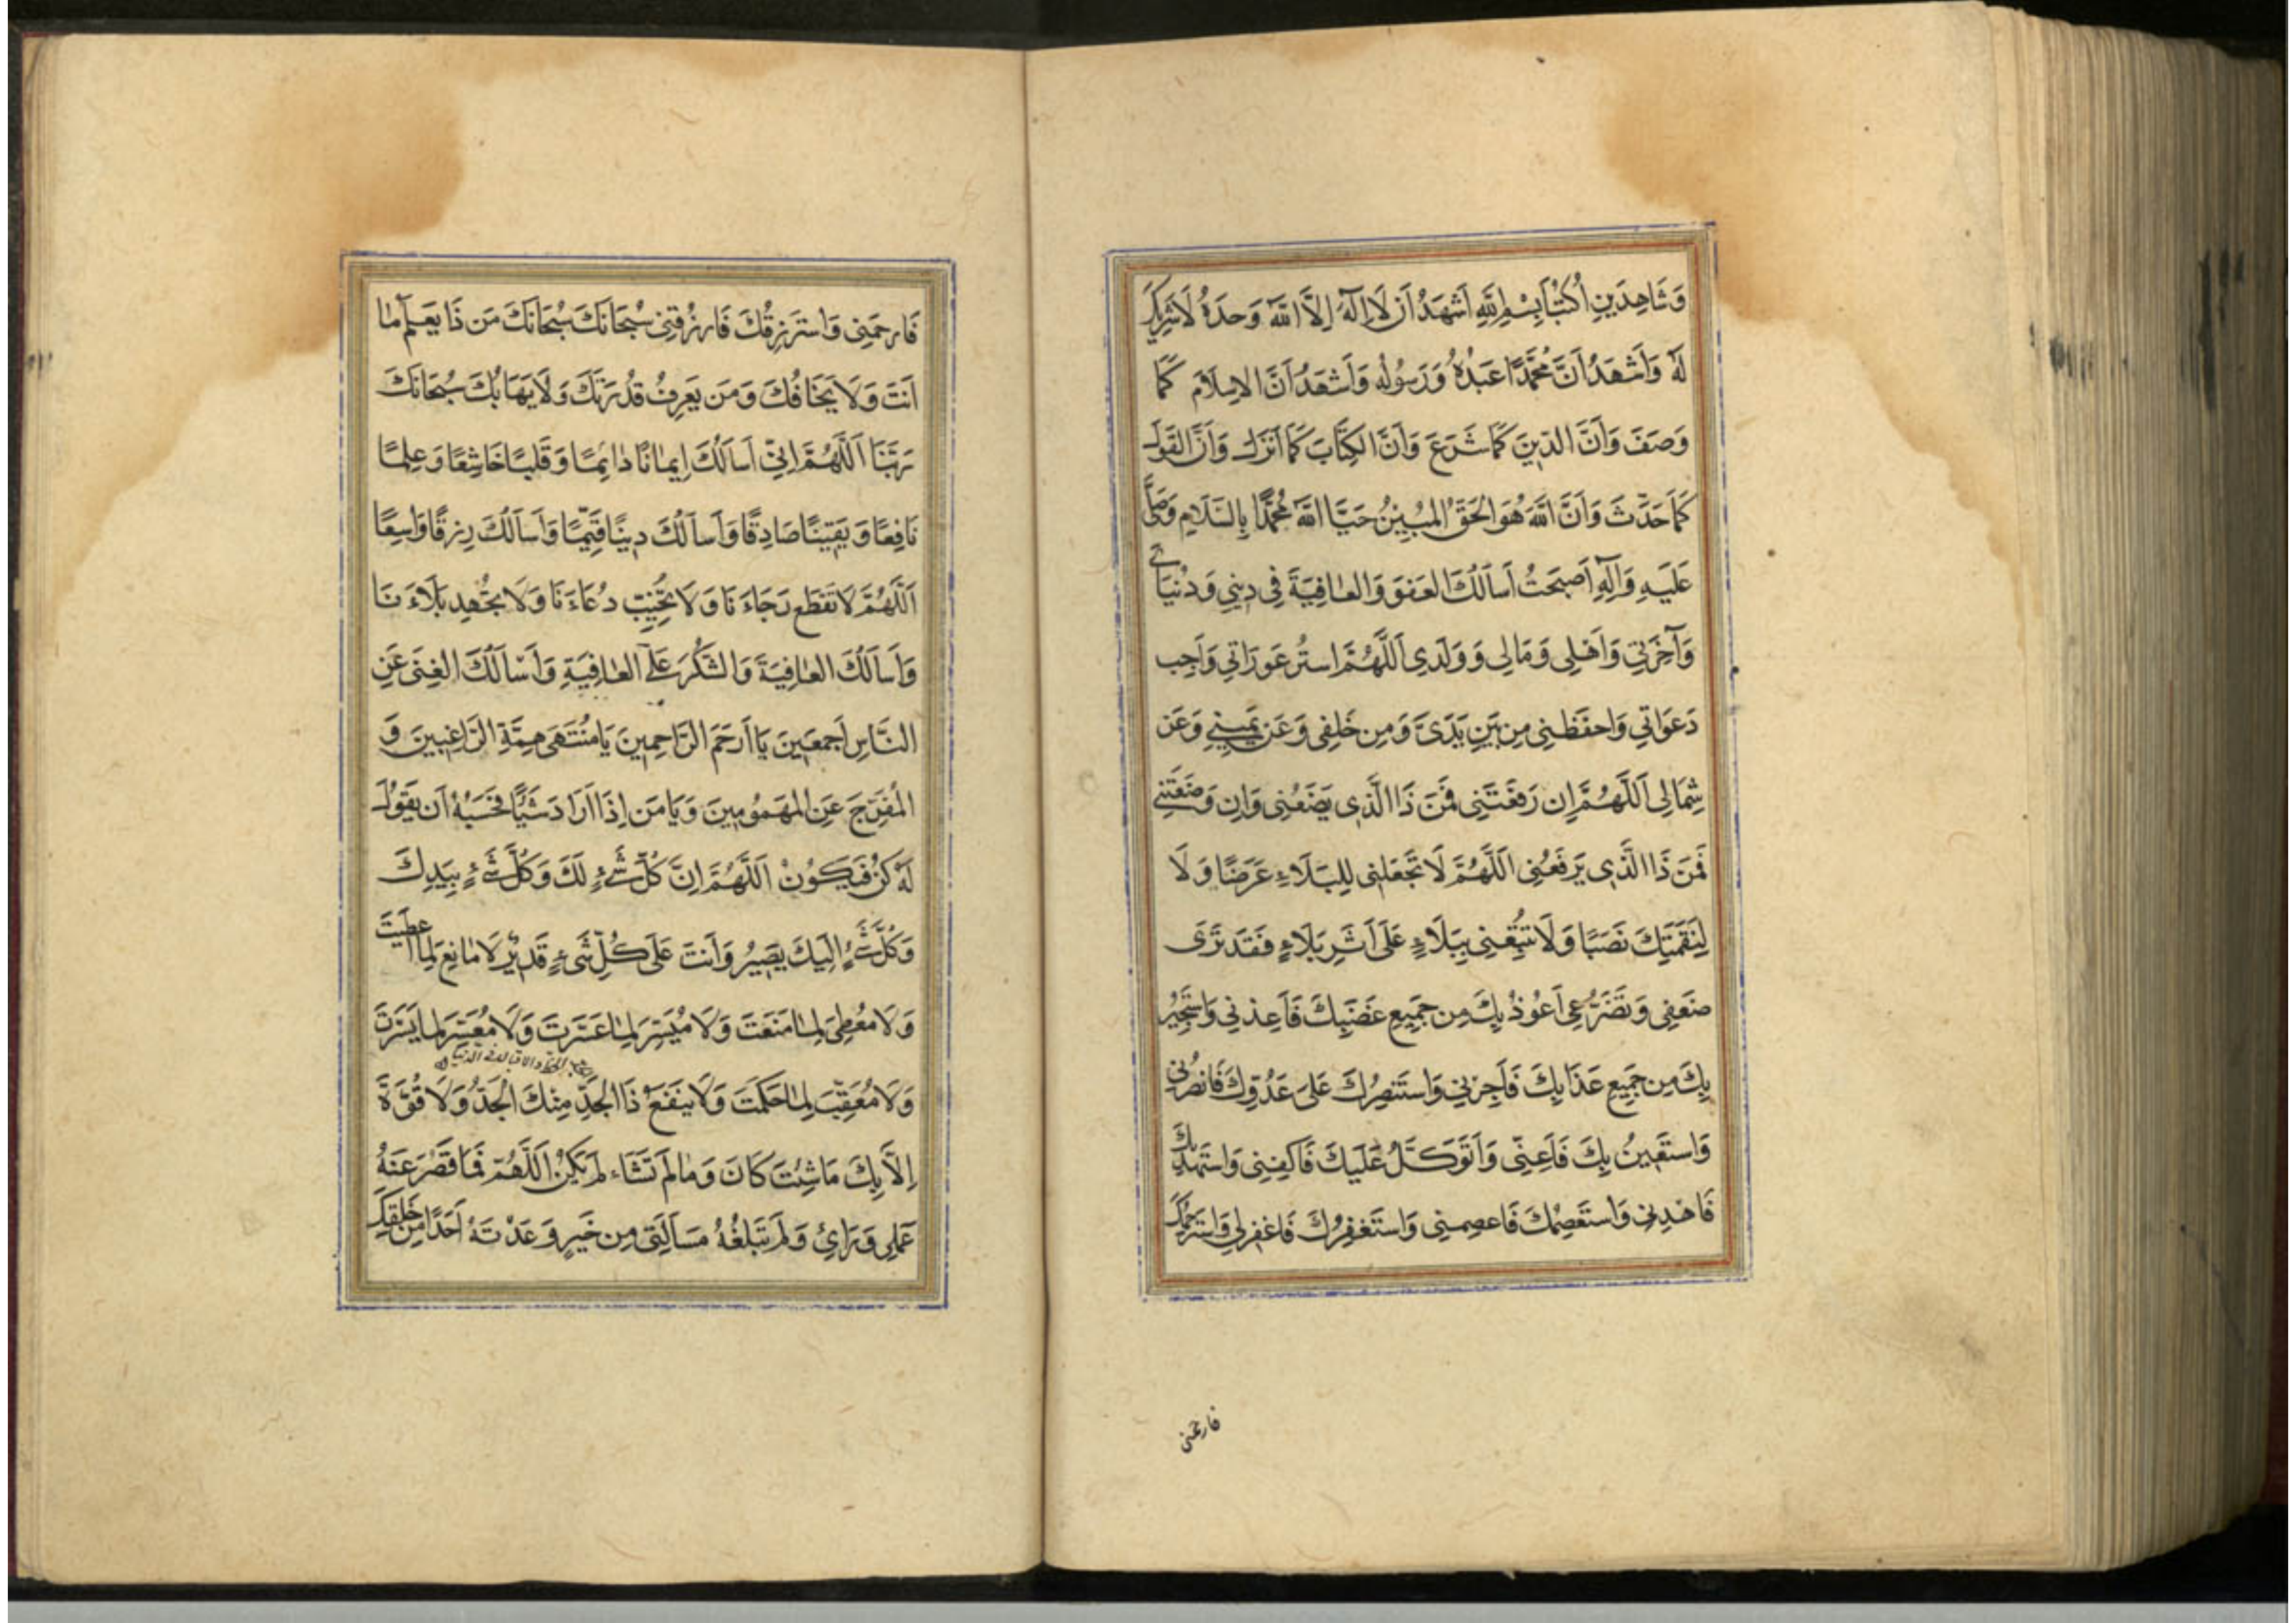 وَشَاهِدَينِ اُكتُبَا بِسْمِ اللّٰهِ اَشهَدُ اَن لَا اِلٰهَ اِلَّا اللّٰهُ وَحدَهُ لَا شَرِيكَ
لَهُ وَاَشهَدُ اَنَّ مُحَمَّدًا عَبدُهُ وَرَسُولُه وَاَشهَدُ اَنَّ الاِسلَامَ كَمَا
وَصَفَ وَاَنَّ الدّينَ كَمَا شَرَعَ وَاَنَّ الكِتَابَ كَمَا اَنزَلَ وَاَنَّ القَولَ
كَمَا حَدَّثَ وَاَنَّ اللّٰهَ هُوَ الحَقُّ المُبِينُ حَيَّا اللّٰهُ مُحَمَّدًا بِالسَّلَامِ وَصَلَّى
عَلَيهِ وَآلِهِ اَصبَحتُ اَسأَلُكَ العَفوَ وَالعَافِيَةَ فِي دِينِي وَدُنيَايَ
وَآخِرَتِي وَاَهلِي وَمَالِي وَوَلَدِي اَللَّهُمَّ استُر عَورَاتِي وَاَجِب
دَعَوَاتِي وَاحفَظنِي مِن بَينِ يَدَيَّ وَمِن خَلفِي وَعَن يَمِينِي وَعَن
شِمَالِي اَللَّهُمَّ اِن رَفَعتَنِي فَمَن ذَا الَّذِي يَضَعُنِي وَاِن وَضَعتَنِي
فَمَن ذَا الَّذِي يَرفَعُنِي اَللَّهُمَّ لَا تَجعَلنِي لِلبَلَاءِ عَرَضًا وَلَا
لِنَقَمَتِكَ نَصَبًا وَلَا تُتبِعنِي بِبَلَاءٍ عَلَى اَثَرِ بَلَاءٍ فَقَد تَرَى
ضَعفِي وَتَضَرُّعِي اَعُوذُ بِكَ مِن جَمِيعِ غَضَبِكَ فَاَعِذنِي وَاَستَجِيرُ
بِكَ مِن جَمِيعِ عَذَابِكَ فَاَجِرنِي وَاَستَنصِرُكَ عَلَى عَدُوِّكَ فَانصُرنِي
وَاَستَعِينُ بِكَ فَاَعِنِّي وَاَتَوَكَّلُ عَلَيكَ فَاكفِنِي وَاَستَهدِيكَ
فَاهدِنِي وَاَستَعصِمُكَ فَاعصِمنِي وَاَستَغفِرُكَ فَاغفِر لِي وَاَستَرحِمُكَ
فارحمنی
فَارحَمنِي وَاَستَرزِقُكَ فَارزُقنِي سُبحَانَكَ سُبحَانَكَ مَن ذَا يَعلَمُ مَا
اَنتَ وَلَا يَخَافُكَ وَمَن يَعرِفُ قُدرَتَكَ وَلَا يَهَابُكَ سُبحَانَكَ
رَبَّنَا اَللَّهُمَّ اِنِّي اَسأَلُكَ اِيمَانًا دَائِمًا وَقَلبًا خَاشِعًا وَعِلمًا
نَافِعًا وَيَقِينًا صَادِقًا وَاَسأَلُكَ دِينًا قَيِّمًا وَاَسأَلُكَ رِزقًا وَاسِعًا
اَللَّهُمَّ لَا تَقطَع رَجَاءَنَا وَلَا تُخَيِّب دُعَاءَنَا وَلَا تُجهِد بَلَاءَنَا
وَاَسأَلُكَ العَافِيَةَ وَالشُّكرَ عَلَى العَافِيَةِ وَاَسأَلُكَ الغِنَى عَنِ
النَّاسِ اَجمَعِينَ يَا اَرحَمَ الرَّاحِمِينَ يَا مُنتَهَى هِمَّةِ الرَّاغِبِينَ وَ
المُفَرِّجَ عَنِ المَهمُومِينَ وَيَا مَن اِذَا اَرَادَ شَيئًا فَحَسبُهُ اَن يَقُولَ
لَهُ كُن فَيَكُونُ اَللَّهُمَّ اِنَّ كُلَّ شَيءٍ لَكَ وَكُلَّ شَيءٍ بِيَدِكَ
وَكُلَّ شَيءٍ اِلَيكَ يَصِيرُ وَاَنتَ عَلَى كُلِّ شَيءٍ قَدِيرٌ لَا مَانِعَ لِمَا اَعطَيتَ
وَلَا مُعطِيَ لِمَا مَنَعتَ وَلَا مُيَسِّرَ لِمَا عَسَّرتَ وَلَا مُعَسِّرَ لِمَا يَسَّرتَ
وَلَا مُعَقِّبَ لِمَا حَكَمتَ وَلَا يَنفَعُ ذَا الجَدِّ مِنكَ الجَدُّ وَلَا قُوَّةَ
اِلَّا بِكَ مَا شِئتَ كَانَ وَمَا لَم تَشَاء لَم يَكُن اَللَّهُمَّ فَمَا قَصُرَ عَنهُ
عَمَلِي وَرَائي وَلَم تَبلُغهُ مَسأَلَتِي مِن خَيرٍ وَعَدتَهُ اَحَدًا مِن خَلقِكَ